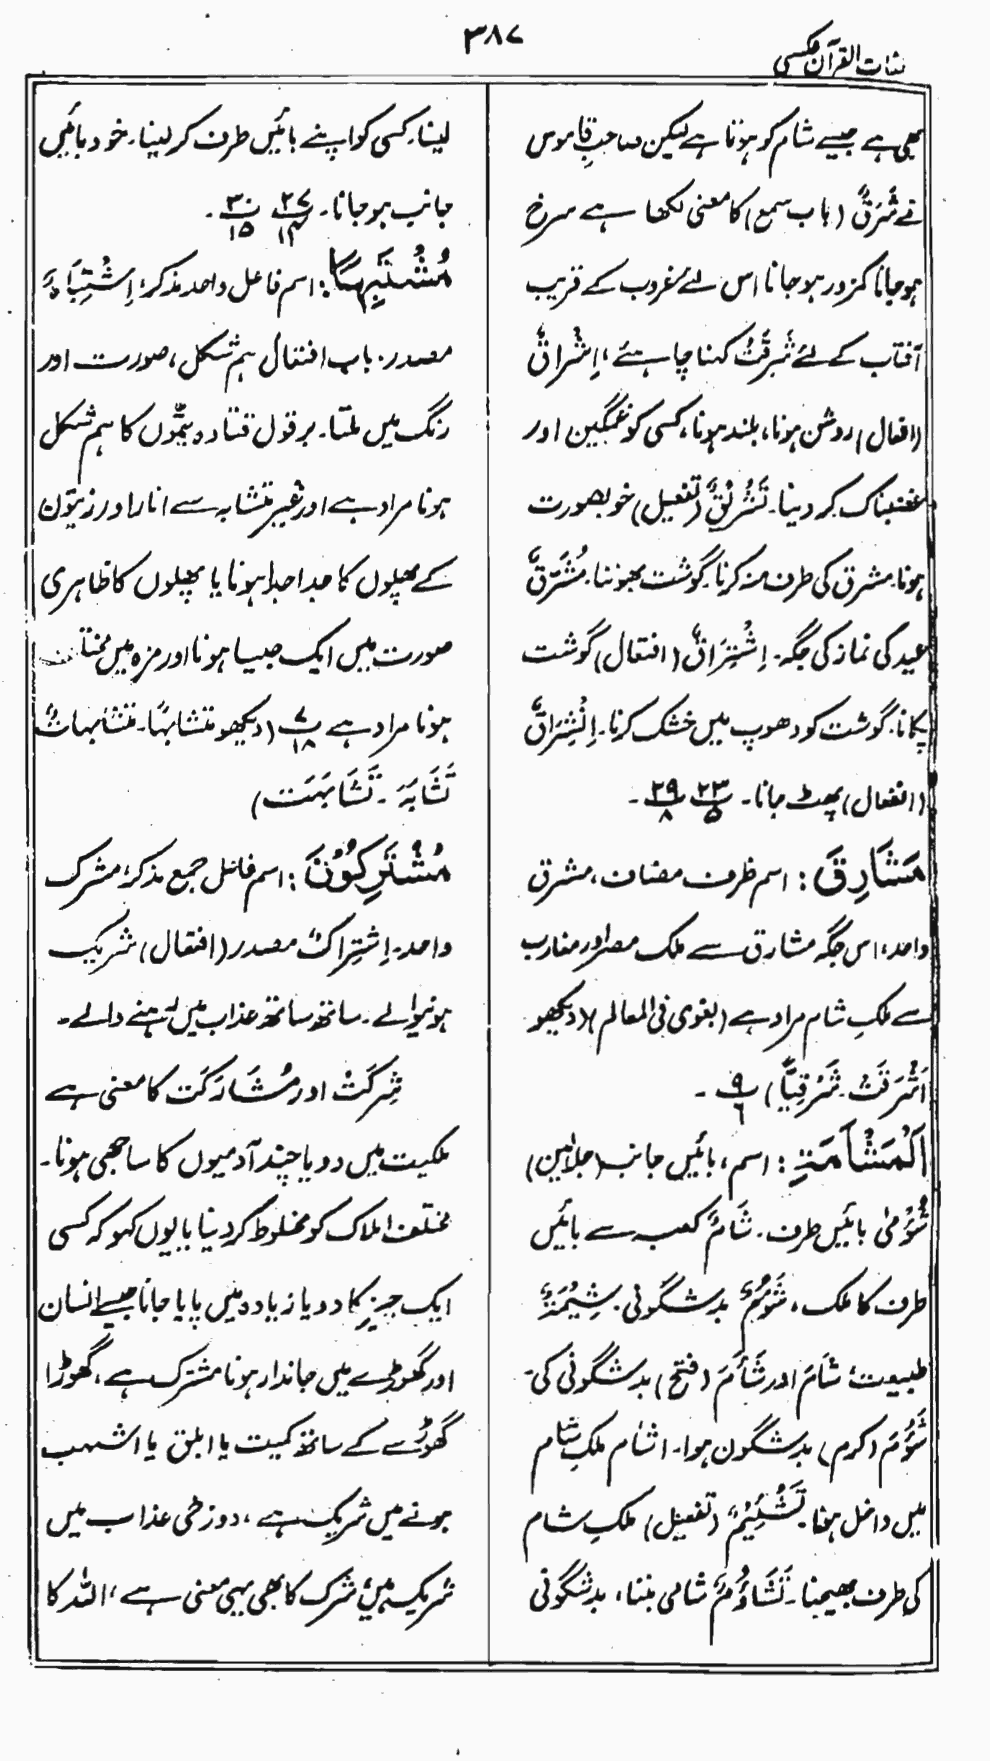 لغات القرآن عکسی
۳۸۷
بھی ہے جیسے شام کو ہوتا ہے لیکن صاحبِ قاموس
نے شَرَقٌ (باب سمع) کا معنی لکھا ہے سرخ
ہوجانا کمزور ہوجانا اس لئے غروب کے قریب
آفتاب کے لئے شَرِقَتْ کہنا چاہئے، اِشْرَاقٌ
(افعال) روشن ہونا، بلند ہونا، کسی کو غمگین اور
غضبناک کر دینا۔ تَشْرِیْقٌ (تفعیل) خوبصورت
ہونا۔ مشرق کی طرف منہ کرنا گوشت بھوننا۔ مُشَرَّقٌ
عید کی نماز کی جگہ۔ اِشْتِرَاقٌ (افتعال) گوشت
پکانا۔ گوشت کو دھوپ میں خشک کرنا۔ اِنْشِرَاقٌ
(انفعال) پھٹ جانا۔ ۲۳/۵ ۲۹/۸ ۔
مَشَارِقَ: اسم ظرف مضاف، مشرق
واحد، اس جگہ مشارق سے ملک مصر اور مغارب
سے ملکِ شام مراد ہے (بغوی فی المعالم) (دیکھو
اَشْرَقَتْ۔ شَرْقِیًّا) ۹/۶ ۔
اَلْمَشْأَمَةِ: اسم، بائیں جانب (جلالین)
شُؤْمٰی بائیں طرف۔ شَامٌ کعبہ سے بائیں
طرف کا ملک، شُؤْمٌ بدشگونی۔ شِیْمَةٌ
طبیعت، شَامَ اور شَأَمَ (فتح) بدشگونی کی۔
شَؤُمَ (کرم) بدشگون ہوا۔ اشام ملکِ شام
میں داخل ہوا۔ تَشْئِیْمٌ (تفعیل) ملکِ شام
کی طرف بھیجنا۔ تَشَاؤُمٌ شامی بننا، بدشگونی
لینا۔ کسی کو اپنے بائیں طرف کر لینا۔ خود بائیں
جانب ہوجانا۔ ۲۷/۱۴ ۳۰/۱۵ ۔
مُشْتَبِہًا: اسم فاعل واحد مذکر، اِشْتِبَاہٌ
مصدر۔ باب افتعال ہم شکل، صورت اور
رنگ میں ملتا۔ بر قول قتادہ پتّوں کا ہم شکل
ہونا مراد ہے اور غیر متشابہ سے انار اور زیتون
کے پھلوں کا جدا جدا ہونا یا پھلوں کا ظاہری
صورت میں ایک جیسا ہونا اور مزہ میں مختلف
ہونا مراد ہے ۷/۱۸ (دیکھو متشابہًا۔ متشابہاتٌ
تَشَابَہَ۔ تَشَابَہَت)
مُشْتَرِکُوْنَ: اسم فاعل جمع مذکر، مشرک
واحد۔ اِشْتِراکٌ مصدر (افتعال) شریک
ہونیوالے۔ ساتھ ساتھ عذاب میں رہنے والے۔
شِرکَتْ اور مُشَارَکَت کا معنی ہے
ملکیت میں دو یا چند آدمیوں کا ساجھی ہونا۔
مختلف املاک کو مخلوط کر دینا یا یوں کہو کہ کسی
ایک چیز کا دو یا زیادہ میں پایا جانا جیسے انسان
اور گھوڑے میں جاندار ہونا مشترک ہے، گھوڑا
گھوڑے کے ساتھ کمیت یا ابلق یا اشہب
ہونے میں شریک ہے، دوزخی عذاب میں
شریک ہیں، شرک کا بھی یہی معنی ہے، اللہ کا